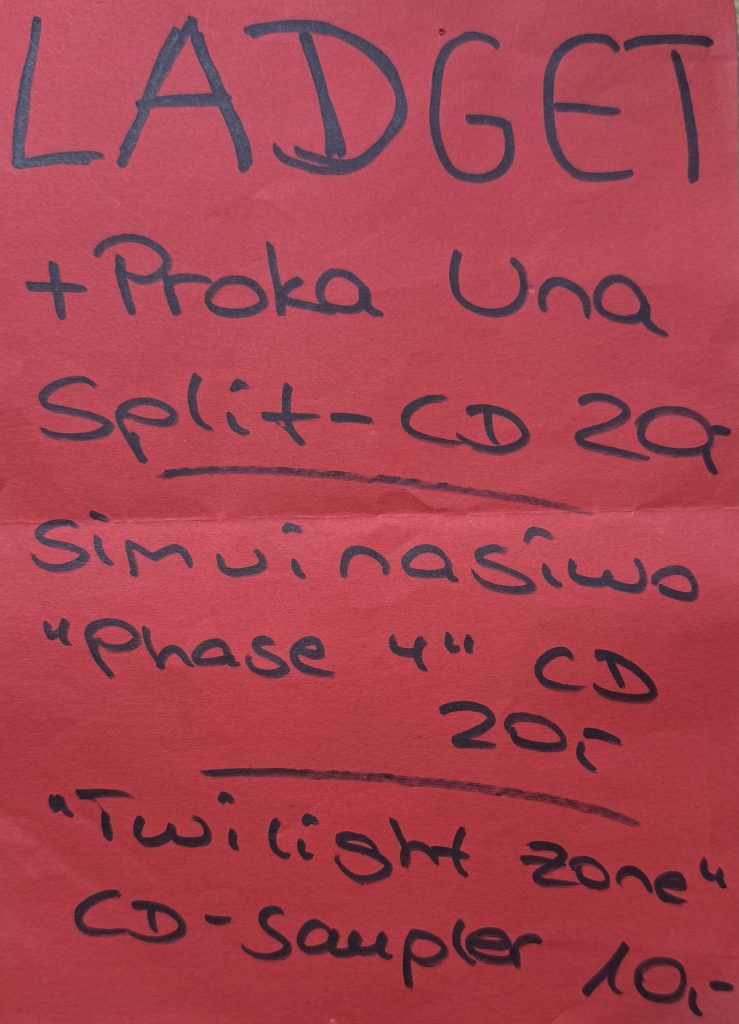 LADGET
+ Proka Una
Split-CD 20,-
Simuinasiwo
"Phase 4" CD
20,-
"Twilight Zone"
CD-Sampler 10,-